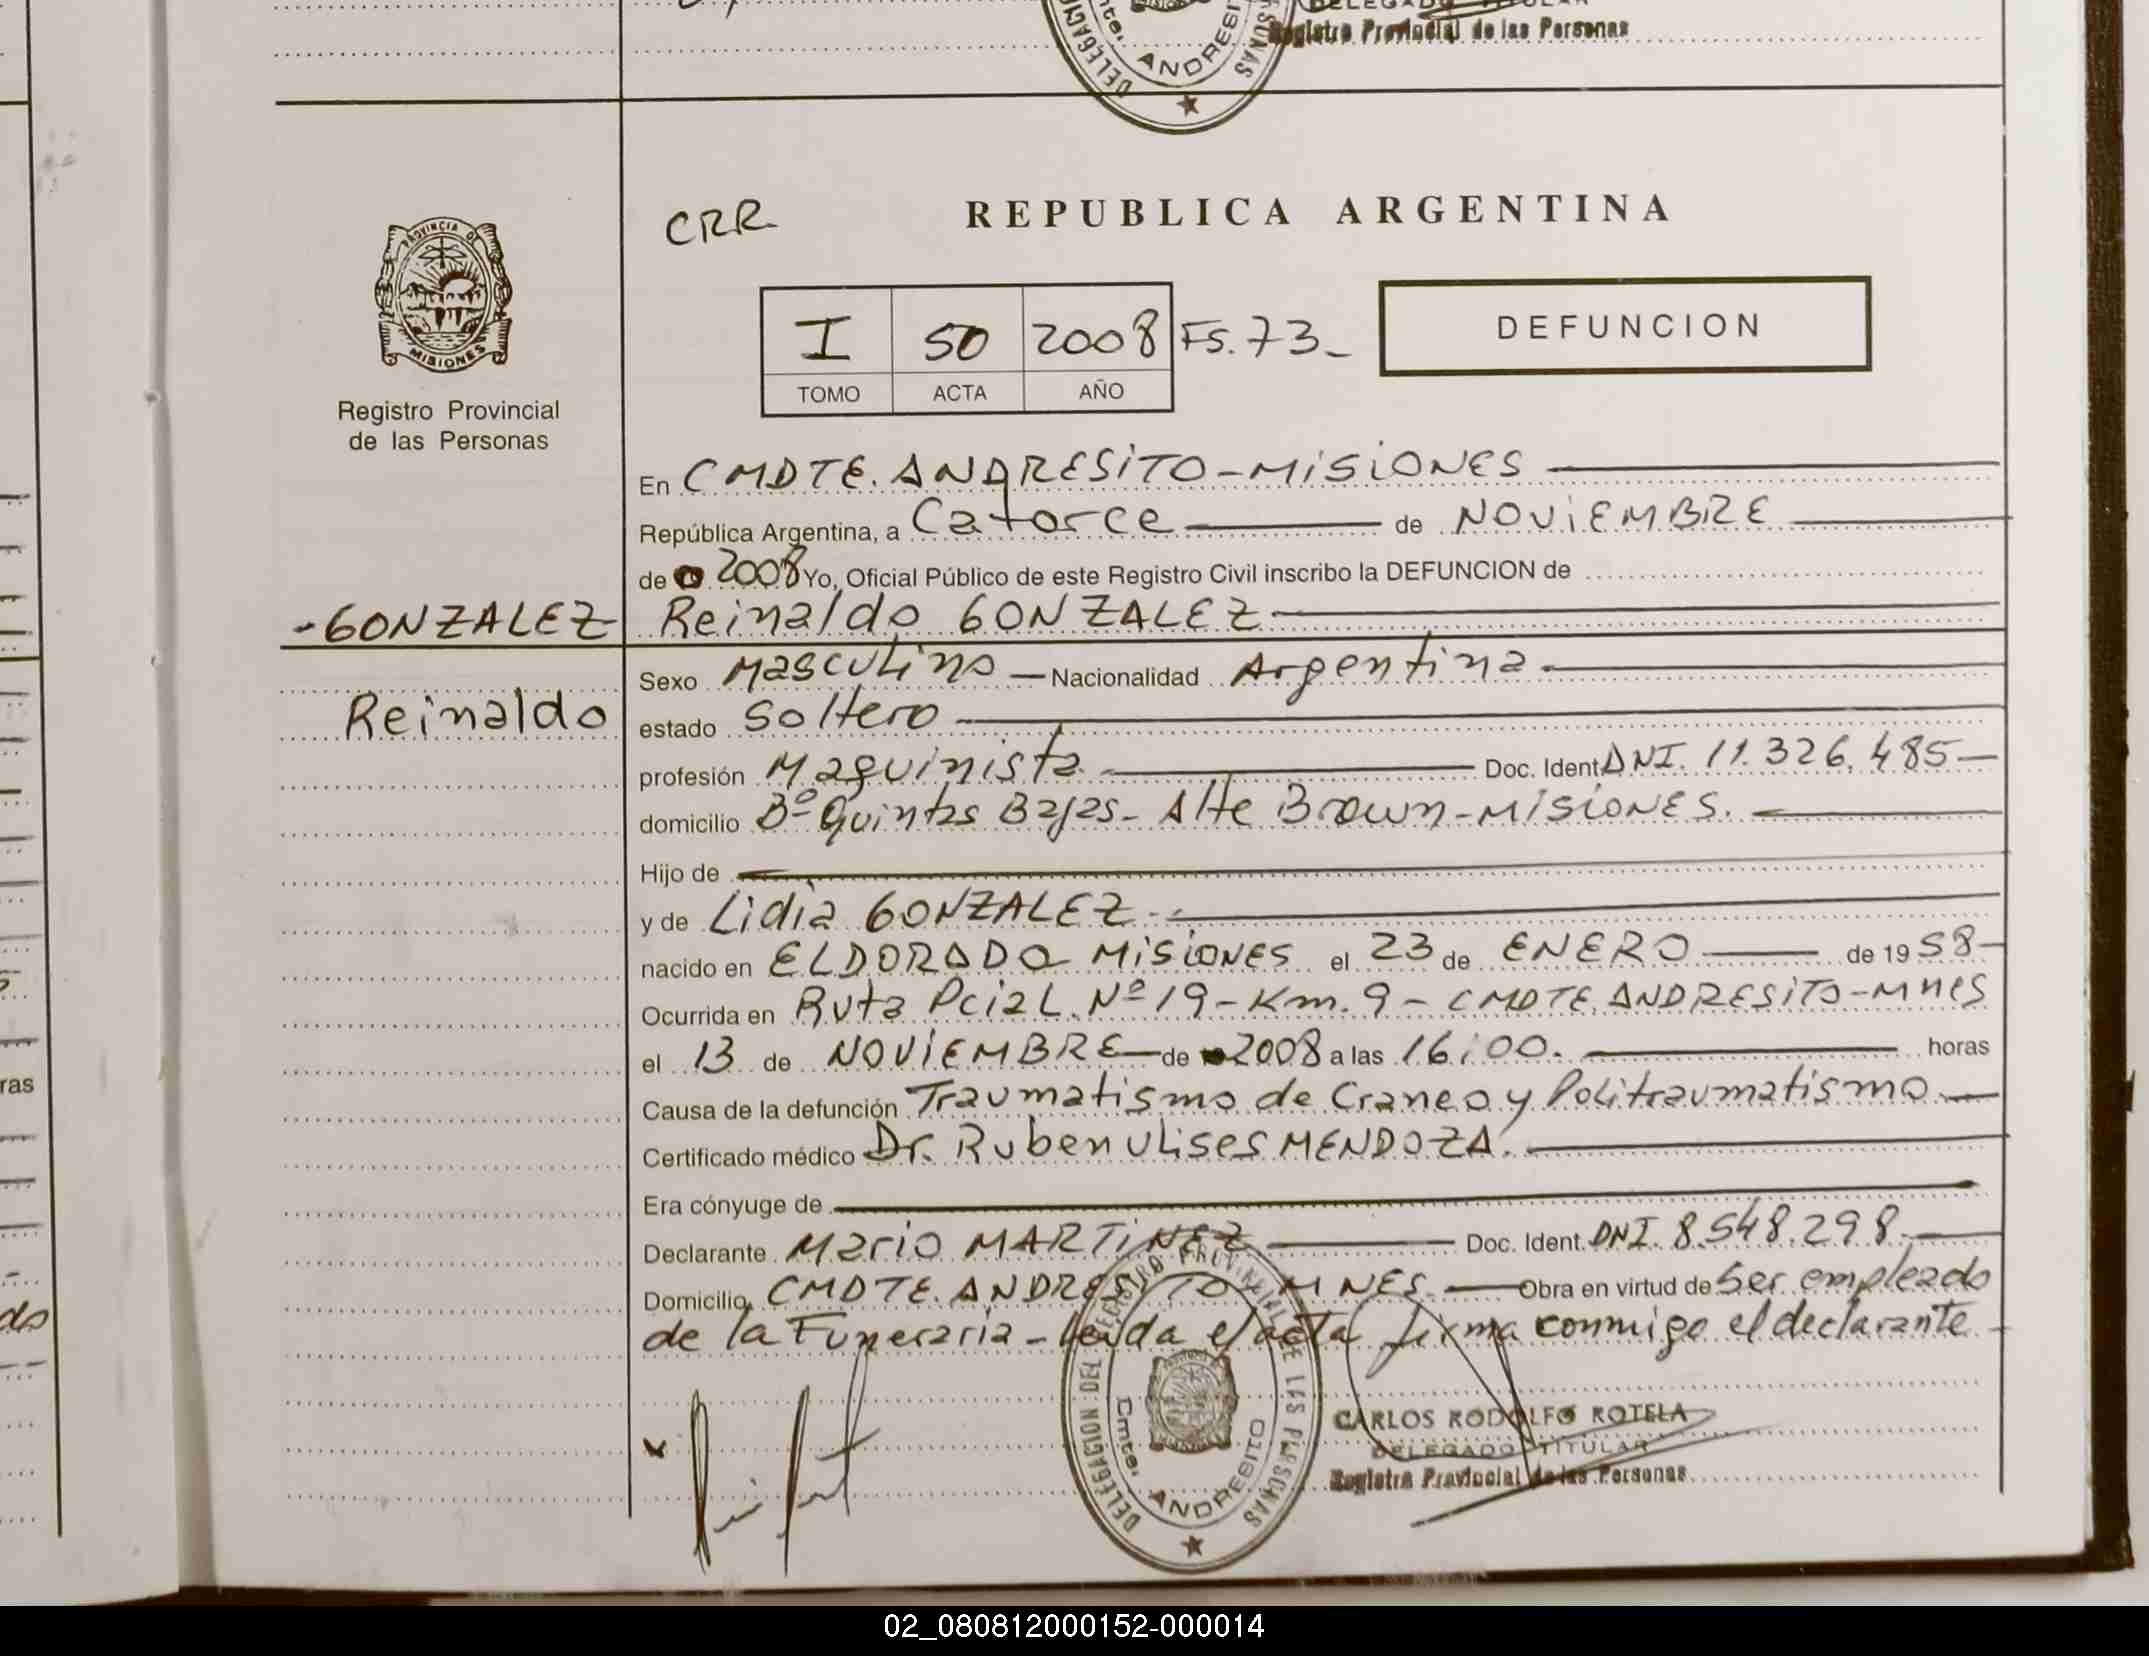 DELEGADO TITULAR
Registro Provincial de las Personas
DELEGACION
Cmte. ANDRESITO
PERSONAS
PROVINCIA DE
MISIONES
Registro Provincial
de las Personas
CRR
REPUBLICA ARGENTINA
I 50 2008 Fs. 73_
TOMO ACTA AÑO
DEFUNCION
En CMDTE. ANDRESITO-MISIONES
República Argentina, a Catorce de NOVIEMBRE
de 2008 Yo, Oficial Público de este Registro Civil inscribo la DEFUNCION de
-GONZALEZ Reinaldo GONZALEZ
Sexo Masculino Nacionalidad Argentina
Reinaldo
estado Soltero
profesión Maquinista Doc. Ident. DNI. 11.326.485
domicilio Bº Quintas Bajas - Alte Brown-MISIONES.
Hijo de
y de Lidia GONZALEZ
nacido en ELDORADO MISIONES el 23 de ENERO de 1958
Ocurrida en Ruta Pcial. Nº 19 - Km. 9 - CMDTE. ANDRESITO-Mnes
el 13 de NOVIEMBRE de 2008 a las 16:00. horas
Causa de la defunción Traumatismo de Craneo y Politraumatismo
Certificado médico Dr. Ruben Ulises MENDOZA.
Era cónyuge de
Declarante Mario MARTINEZ Doc. Ident. DNI. 8.548.298
Domicilio CMDTE. ANDRESITO MNES. Obra en virtud de Ser empleado
de la Funeraria - Leida el acta firma conmigo el declarante
DELEGACION DEL REGISTRO PROVINCIAL DE LAS PERSONAS
Cmte. ANDRESITO
CARLOS RODOLFO ROTELA
DELEGADO TITULAR
Registro Provincial de las Personas
02_080812000152-000014